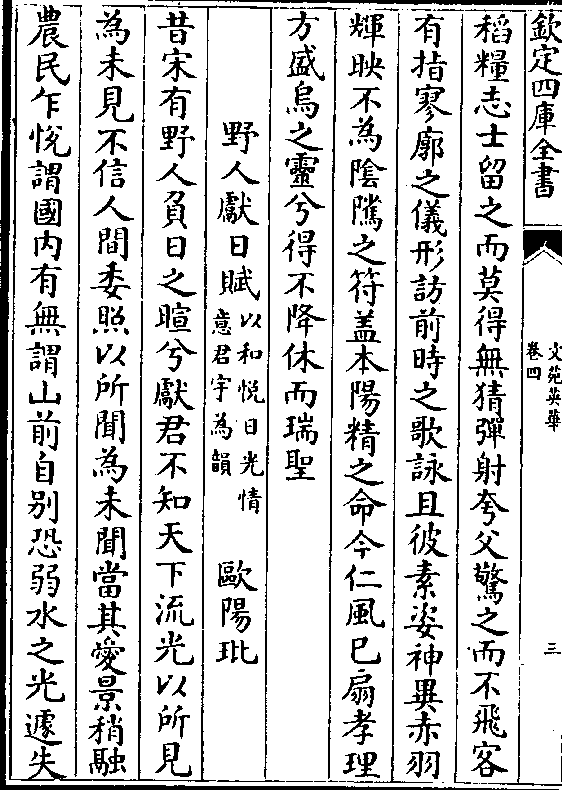 欽定四庫全書
文苑英華
卷四
三
稻糧志士留之而莫得無猜彈射夸父驚之而不飛客
有指寥廓之儀形訪前時之歌詠且彼素姿神異赤羽
輝映不為陰隲之符盖本陽精之命今仁風已扇孝理
方盛烏之靈兮得不降休而瑞聖
野人獻日賦以和悅日光情意君宇為韻 歐陽玭
昔宋有野人負日之暄兮獻君不知天下流光以所見
為未見不信人間委照以所聞為未聞當其愛景稍融
農民乍悅謂國內有無謂山前自別恐弱水之光遽失